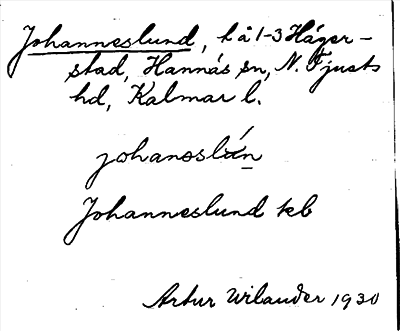 Johanneslund, l å 1-3 Häger-
stad, Hannäs sn, N. Tjusts
hd, Kalmar l.
johanəslún
Johanneslund kb
Artur Wilander 1930